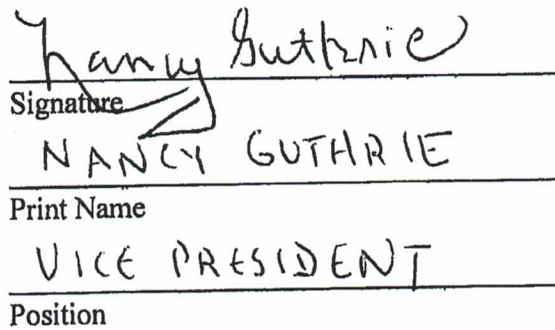 Nancy Guthrie
Signature
NANCY GUTHRIE
Print Name
VICE PRESIDENT
Position